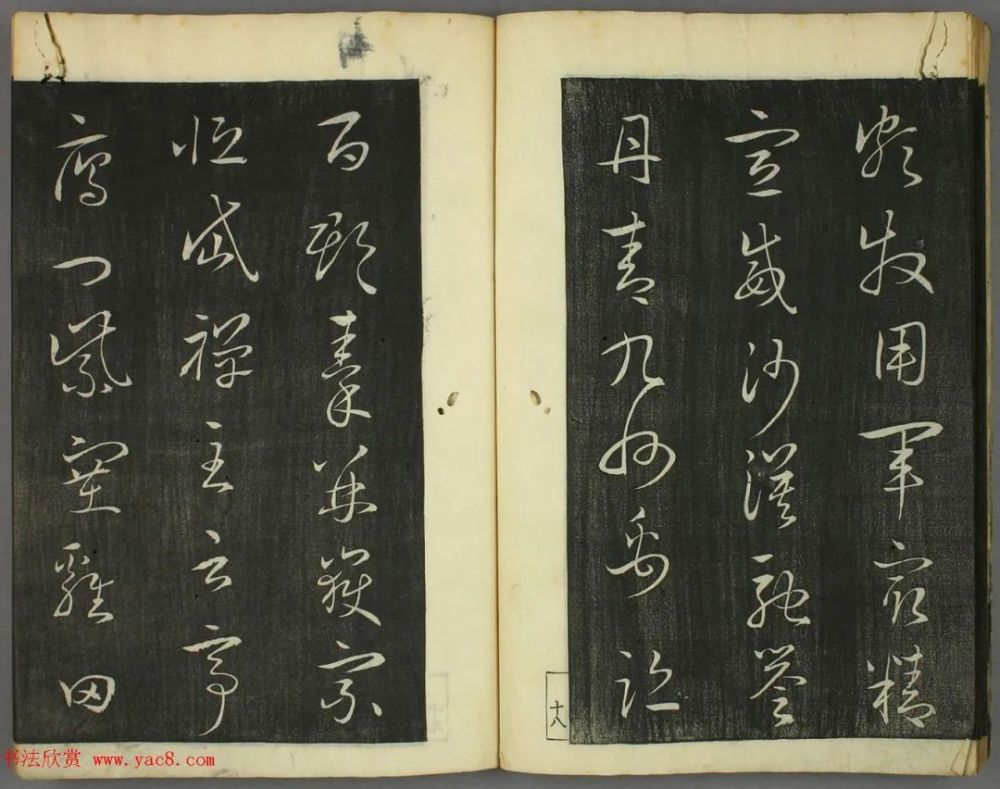 頗牧用軍最精
宣威沙漠馳譽
丹青九州禹跡
百郡秦并嶽宗
恒岱禪主云亭
雁門紫塞雞田
十八
书法欣赏 www.yac8.com